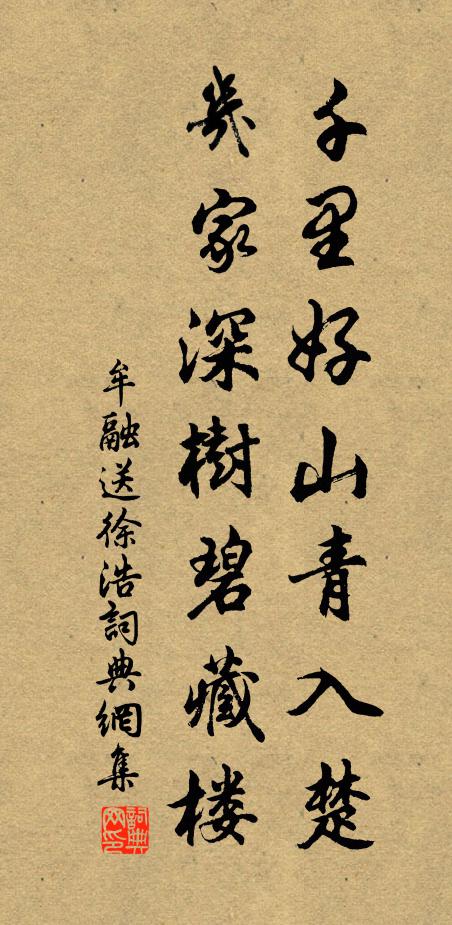 千里好山青入楚
幾家深樹碧藏楼
牟融送徐浩詞典網集
詞典网印